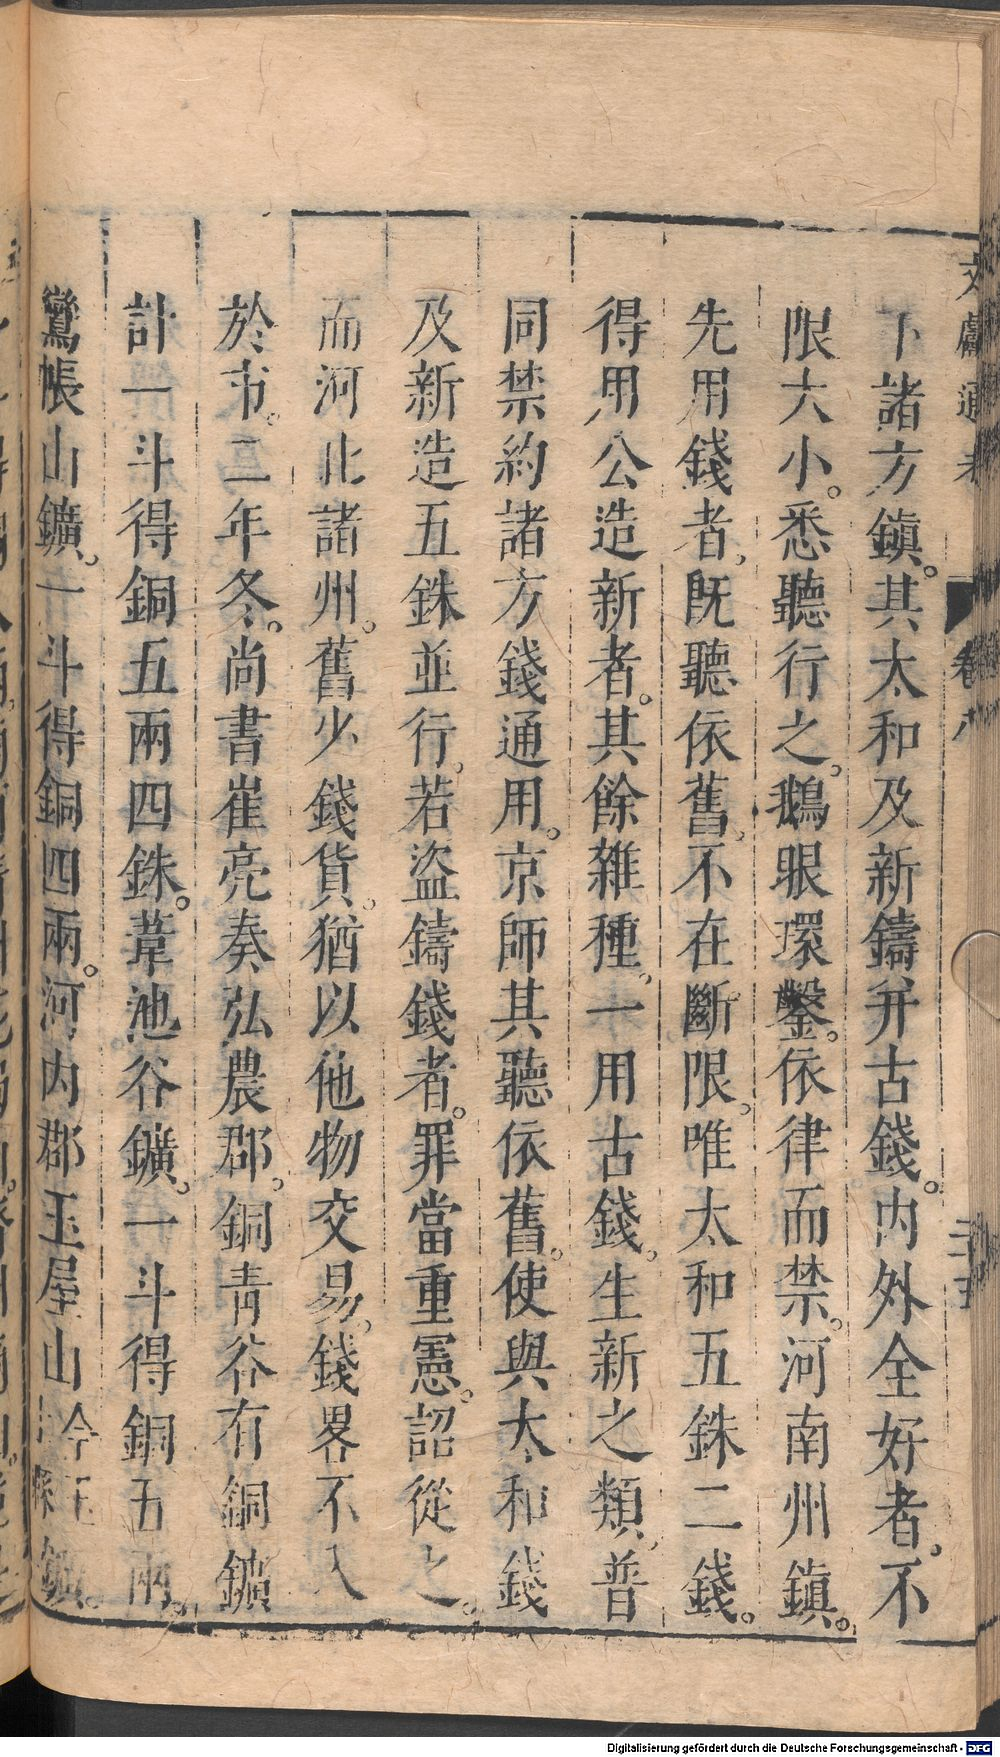 文獻通考 卷八
下諸方鎮。其太和及新鑄并古錢。內外全好者。不
限大小。悉聽行之。鵝眼環鑿。依律而禁。河南州鎮。
先用錢者。旣聽依舊。不在斷限。唯太和五銖二錢。
得用公造新者。其餘雜種。一用古錢。生新之類。普
同禁約諸方錢通用。京師其聽依舊。使與太和錢
及新造五銖並行。若盜鑄錢者。罪當重憲。詔從之。
而河北諸州。舊少錢貨。猶以他物交易。錢畧不入
於市。二年冬。尚書崔亮奏弘農郡。銅青谷有銅鑛
計一斗得銅五兩四銖。葦池谷鑛。一斗得銅五兩。
鸞帳山鑛。一斗得銅四兩。河內郡玉屋山今玉縣鑛。
Digitalisierung gefördert durch die Deutsche Forschungsgemeinschaft - DFG